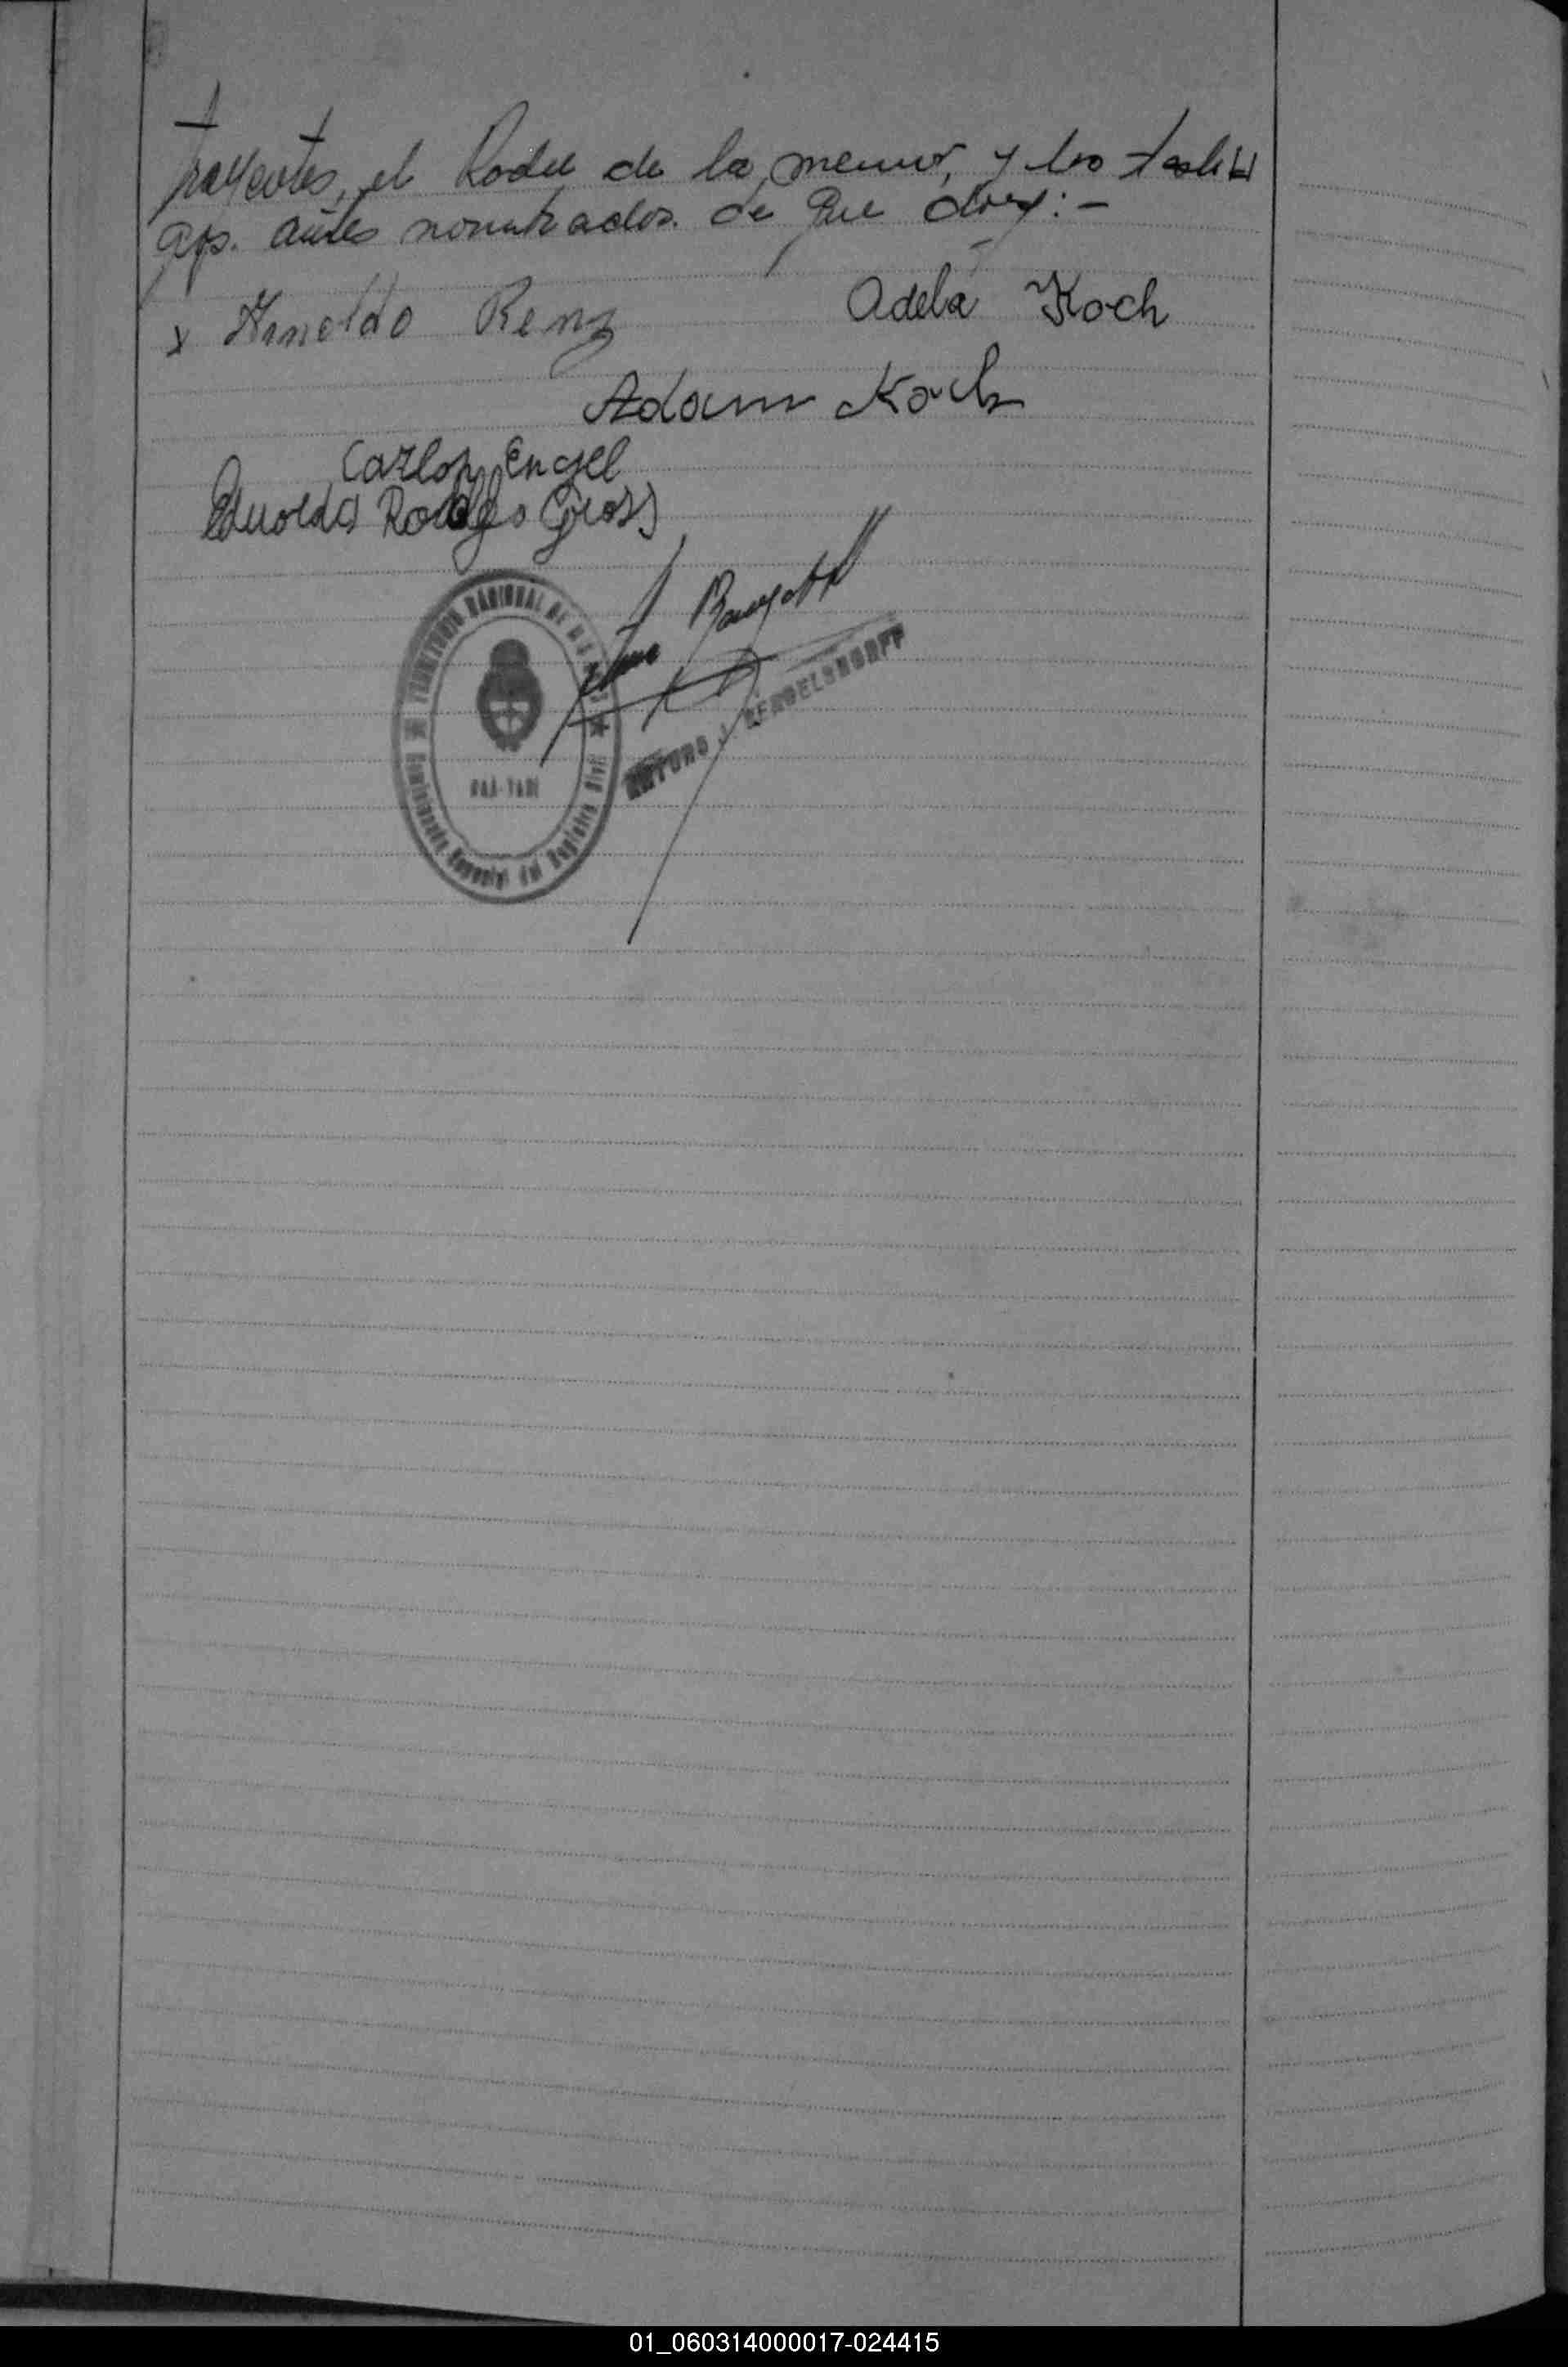 trayentes, el Padre de la menor, y los testi
gos. antes nombrados. de que doy:-
x Arnoldo Renz
Adela Koch
Adam Koch
Carlos Engel
Eduoldo Rodolfo Gross
TERRITORIO NACIONAL DE
CAÁ-YARÍ
del Registro Civil
ARTURO J. BENGELSDORFF
01_060314000017-024415